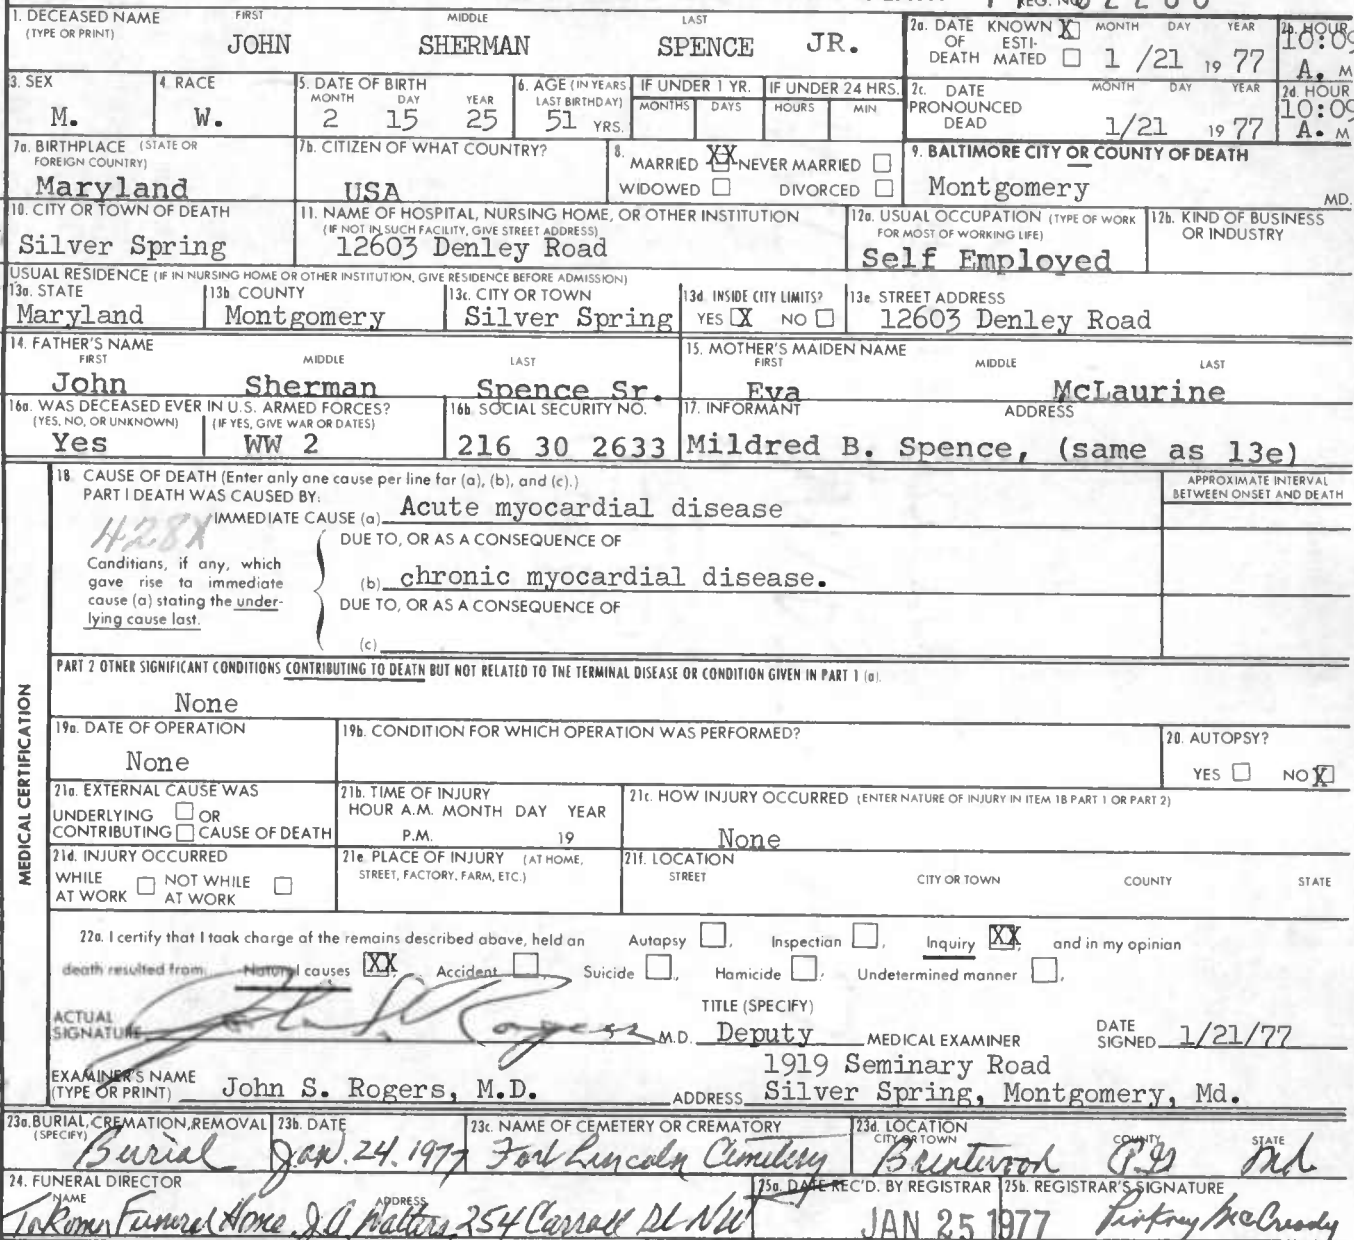 1. DECEASED NAME (TYPE OR PRINT) FIRST MIDDLE LAST
JOHN SHERMAN SPENCE JR.
2a. DATE OF DEATH KNOWN X ESTIMATED MONTH DAY YEAR
1 /21 19 77
2b. HOUR
10:09 A. M
3. SEX
M.
4. RACE
W.
5. DATE OF BIRTH
MONTH DAY YEAR
2 15 25
6. AGE (IN YEARS LAST BIRTHDAY)
51 YRS.
IF UNDER 1 YR.
MONTHS DAYS
IF UNDER 24 HRS.
HOURS MIN
2c. DATE PRONOUNCED DEAD MONTH DAY YEAR
1/21 19 77
2d. HOUR
10:09 A. M
7a. BIRTHPLACE (STATE OR FOREIGN COUNTRY)
Maryland
7b. CITIZEN OF WHAT COUNTRY?
USA
8. MARRIED XX NEVER MARRIED
WIDOWED DIVORCED
9. BALTIMORE CITY OR COUNTY OF DEATH
Montgomery MD.
10. CITY OR TOWN OF DEATH
Silver Spring
11. NAME OF HOSPITAL, NURSING HOME, OR OTHER INSTITUTION
(IF NOT IN SUCH FACILITY, GIVE STREET ADDRESS)
12603 Denley Road
12a. USUAL OCCUPATION (TYPE OF WORK FOR MOST OF WORKING LIFE)
Self Employed
12b. KIND OF BUSINESS OR INDUSTRY
USUAL RESIDENCE (IF IN NURSING HOME OR OTHER INSTITUTION, GIVE RESIDENCE BEFORE ADMISSION)
13a. STATE
Maryland
13b. COUNTY
Montgomery
13c. CITY OR TOWN
Silver Spring
13d. INSIDE CITY LIMITS?
YES X NO
13e. STREET ADDRESS
12603 Denley Road
14. FATHER'S NAME
FIRST MIDDLE LAST
John Sherman Spence Sr.
15. MOTHER'S MAIDEN NAME
FIRST MIDDLE LAST
Eva McLaurine
16a. WAS DECEASED EVER IN U.S. ARMED FORCES?
(YES, NO, OR UNKNOWN) (IF YES, GIVE WAR OR DATES)
Yes WW 2
16b. SOCIAL SECURITY NO.
216 30 2633
17. INFORMANT ADDRESS
Mildred B. Spence, (same as 13e)
MEDICAL CERTIFICATION
18. CAUSE OF DEATH (Enter only one cause per line for (a), (b), and (c).)
PART I DEATH WAS CAUSED BY:
APPROXIMATE INTERVAL BETWEEN ONSET AND DEATH
IMMEDIATE CAUSE (a) Acute myocardial disease
428X
DUE TO, OR AS A CONSEQUENCE OF
Conditions, if any, which
gave rise to immediate
cause (a) stating the under-
lying cause last.
(b) chronic myocardial disease.
DUE TO, OR AS A CONSEQUENCE OF
(c)
PART 2 OTHER SIGNIFICANT CONDITIONS CONTRIBUTING TO DEATH BUT NOT RELATED TO THE TERMINAL DISEASE OR CONDITION GIVEN IN PART 1 (a).
None
19a. DATE OF OPERATION
None
19b. CONDITION FOR WHICH OPERATION WAS PERFORMED?
20. AUTOPSY?
YES NO X
21a. EXTERNAL CAUSE WAS
UNDERLYING OR
CONTRIBUTING CAUSE OF DEATH
21b. TIME OF INJURY
HOUR A.M. MONTH DAY YEAR
P.M. 19
21c. HOW INJURY OCCURRED (ENTER NATURE OF INJURY IN ITEM 18 PART 1 OR PART 2)
None
21d. INJURY OCCURRED
WHILE AT WORK NOT WHILE AT WORK
21e. PLACE OF INJURY (AT HOME, STREET, FACTORY, FARM, ETC.)
21f. LOCATION
STREET CITY OR TOWN COUNTY STATE
22a. I certify that I took charge of the remains described above, held an Autopsy , Inspection , Inquiry XX, and in my opinion
death resulted from: Natural causes XX, Accident , Suicide , Homicide , Undetermined manner ,
ACTUAL SIGNATURE John S. Rogers M.D.
TITLE (SPECIFY)
Deputy MEDICAL EXAMINER
DATE SIGNED 1/21/77
EXAMINER'S NAME (TYPE OR PRINT) John S. Rogers, M.D.
ADDRESS 1919 Seminary Road
Silver Spring, Montgomery, Md.
23a. BURIAL, CREMATION, REMOVAL (SPECIFY)
Burial
23b. DATE
Jan. 24. 1977
23c. NAME OF CEMETERY OR CREMATORY
Fort Lincoln Cemetery
23d. LOCATION
CITY OR TOWN COUNTY STATE
Brentwood P.G Md
24. FUNERAL DIRECTOR
NAME ADDRESS
Takoma Funeral Home J.A. Walters 254 Carroll St NW
25a. DATE REC'D. BY REGISTRAR
JAN 25 1977
25b. REGISTRAR'S SIGNATURE
Pinkney McCready